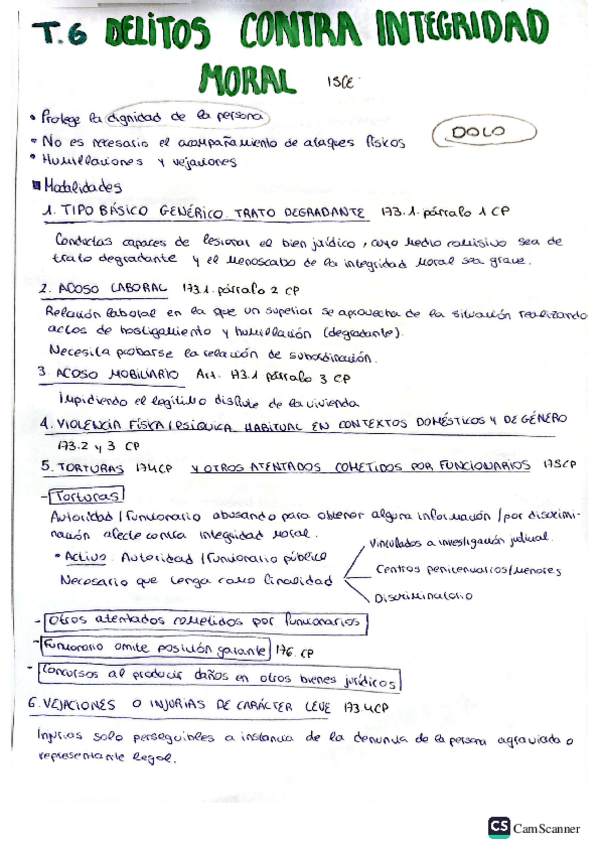 T.6 DELITOS CONTRA INTEGRIDAD
MORAL 15CE
• Protege la dignidad de la persona
• No es necesario el acompañamiento de ataques físicos
DOLO
• Humillaciones y vejaciones
Modalidades
1. TIPO BÁSICO GENÉRICO. TRATO DEGRADANTE 173.1. párrafo 1 CP
Conductas capaces de lesionar el bien jurídico, cuyo medio comisivo sea de
trato degradante y el menoscabo de la integridad moral sea grave.
2. ACOSO LABORAL 173.1. párrafo 2 CP
Relación laboral en la que un superior se aprovecha de la situación realizando
actos de hostigamiento y humillación (degradante).
Necesita probarse la relación de subordinación.
3 ACOSO MOBILIARIO Art. 173.1 párrafo 3 CP
Impidiendo el legítimo disfrute de la vivienda
4. VIOLENCIA FÍSICA/PSIQUICA HABITUAL EN CONTEXTOS DOMÉSTICOS Y DE GÉNERO
173.2 y 3 CP
5. TORTURAS 174CP Y OTROS ATENTADOS COMETIDOS POR FUNCIONARIOS 175CP
- Torturas
Autoridad/funcionario abusando para obtener alguna información/por discrimi-
nación afecte contra integridad moral.
• Activo. Autoridad/funcionario público
Necesario que tenga como finalidad
Vinculados a investigación judicial.
Centros penitenciarios/menores
Discriminatorio
- Otros atentados cometidos por funcionarios
- Funcionario omite posición garante 176.CP
- Concursos al producir daños en otros bienes jurídicos
6. VEJACIONES O INJURIAS DE CARÁCTER LEVE 173.4CP
Injurias solo perseguibles a instancia de la denuncia de la persona agraviada o
representante legal.
CS CamScanner